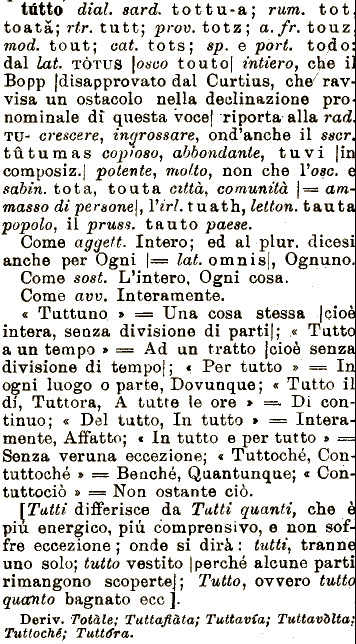 tútto dial. sard. tottu-a; rum. tot,
toată; rtr. tutt; prov. totz; a. fr. touz,
mod. tout; cat. tots; sp. e port. todo:
dal lat. TÒTUS |osco touto| intiero, che il
Bopp |disapprovato dal Curtius, che rav-
visa un ostacolo nella declinazione pro-
nominale di questa voce| riporta alla rad.
TU- crescere, ingrossare, ond'anche il sscr.
tûtumas copioso, abbondante, tuvi |in
composiz.| potente, molto, non che l'osc. e
sabin. tota, touta città, comunità |= am-
masso di persone|, l'irl. tuath, letton. tauta
popolo, il pruss. tauto paese.
Come aggett. Intero; ed al plur. dicesi
anche per Ogni |= lat. omnis|, Ognuno.
Come sost. L'intero, Ogni cosa.
Come avv. Interamente.
« Tuttuno » = Una cosa stessa |cioè
intera, senza divisione di parti|; « Tutto
a un tempo » = Ad un tratto |cioè senza
divisione di tempo|; « Per tutto » = In
ogni luogo o parte, Dovunque; « Tutto il
dí, Tuttora, A tutte le ore » = Di con-
tinuo; « Del tutto, In tutto » = Intera-
mente, Affatto; « In tutto e per tutto » =
Senza veruna eccezione; « Tuttoché, Con-
tuttoché » = Benché, Quantunque; « Con-
tuttociò » = Non ostante ciò.
[Tutti differisce da Tutti quanti, che è
piú energico, piú comprensivo, e non sof-
fre eccezione; onde si dirà: tutti, tranne
uno solo; tutto vestito |perché alcune parti
rimangono scoperte|; Tutto, ovvero tutto
quanto bagnato ecc].
Deriv. Totàle; Tuttafiàta; Tuttavía; Tuttavòlta;
Tuttoché; Tuttóra.